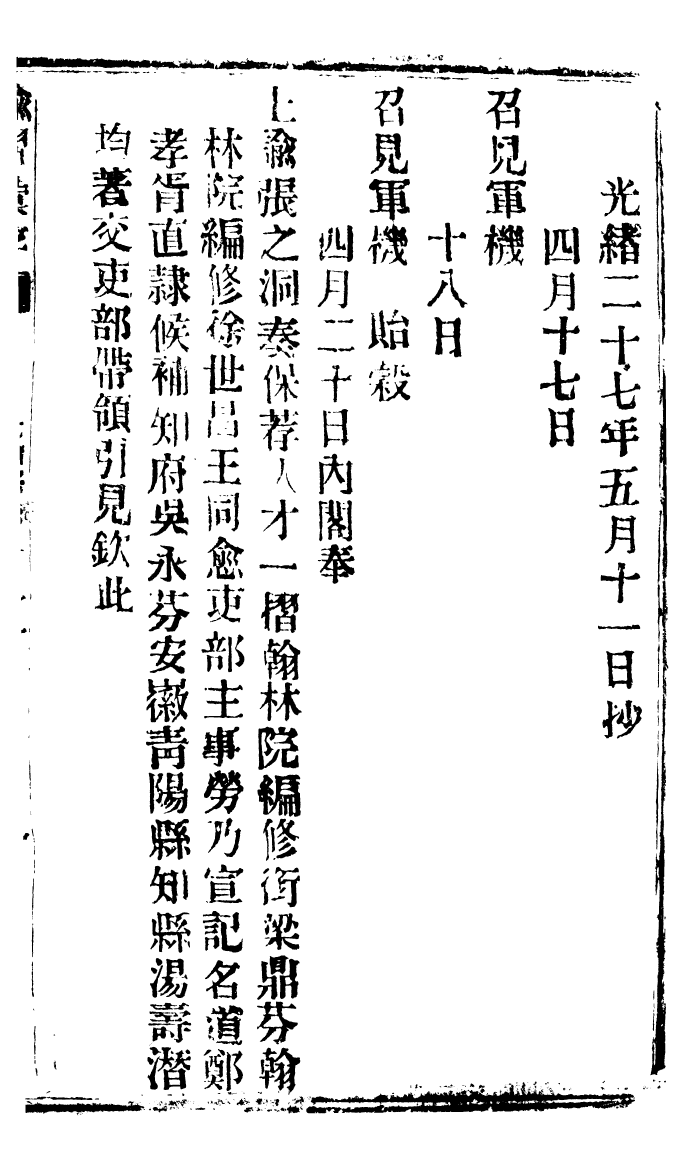 光緒二十七年五月十一日抄
四月十七日
召見軍機
十八日
召見軍機　貽穀
四月二十日內閣奉
上諭張之洞奏保荐人才一摺翰林院編修銜梁鼎芬翰
林院編修徐世昌王同愈吏部主事勞乃宣記名道鄭
孝胥直隸候補知府吳永芬安徽青陽縣知縣湯壽潛
均著交吏部帶領引見欽此